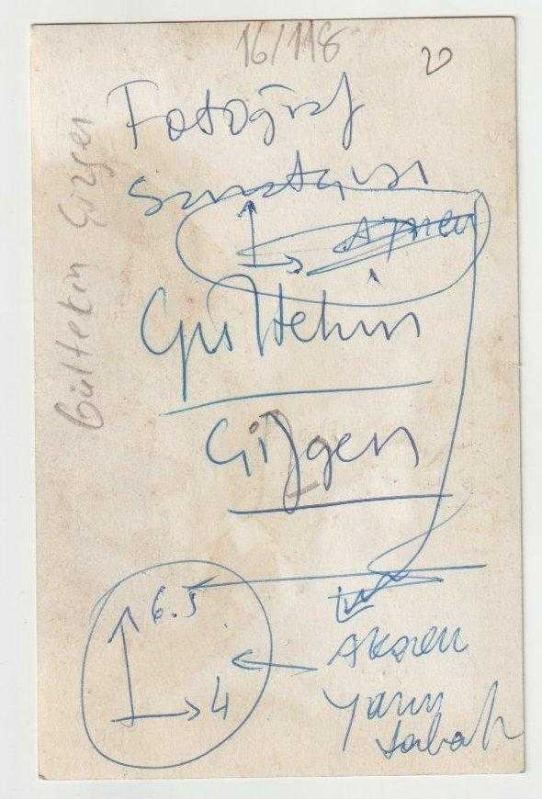 16/118
Fotoğraf
sanatçısı
Aynen
Gültekin
Çizgen
Gültekin Çizgen
6.5
4
Aksam
Yarın
sabah